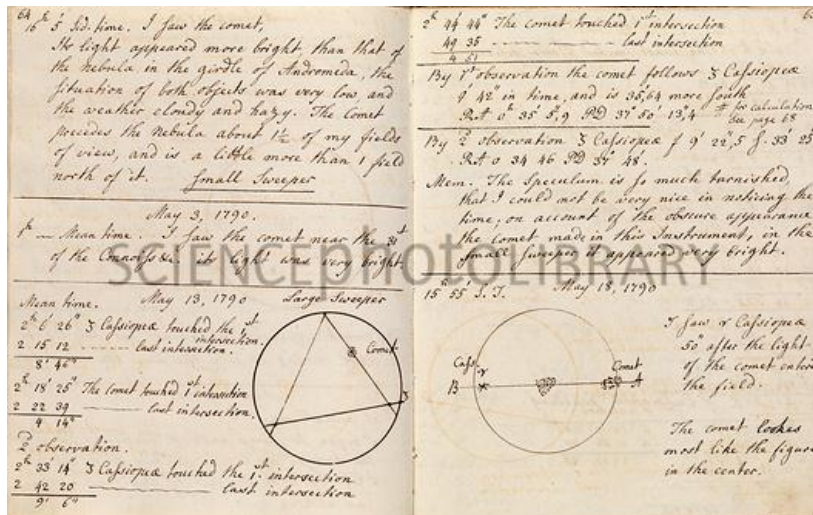 64
16h 5' Sid. time. I saw the comet,
Its light appeared more bright, than that of
the nebula in the girdle of Andromeda, the
situation of both objects was very low and
the weather cloudy and hazy. The Comet
precedes the Nebula about 1½ of my fields
of view, and is a little more than 1 field
north of it. Small Sweeper
May 3, 1790.
1h — Mean time. I saw the comet near the 31st
of the Connoiss. its light was very bright
Mean time. May 13, 1790 Large Sweeper
2h 6' 26" ʒ Cassiopeæ touched the 1st
intersection.
2 15 12 ------ last intersection.
8' 46"
2h 18' 25" The comet touched 1st intersection
2 22 39 ------ last intersection.
4 14"
Comet
2d observation.
2h 33' 14" ʒ Cassiopeæ touched the 1st intersection
2 42 20 ------ last intersection
9' 6"
2h 44' 44" The comet touched 1st intersection
49 35 ------ last intersection
4 51
By 1st observation the comet follows ʒ Cassiopeæ
9' 42" in time, and is 35',64 more south
RA 0h 35' 5",9 PD 37° 50' 13",4
# for calculation
see page 68
By 2d observation ʒ Cassiopeæ f 9' 22",5 S. 33' 25
RA 0 34 46 PD 37° 48.
Mem. The Speculum is so much tarnished,
that I could not be very nice in noticing the
time; on account of the obscure appearance
the comet made in this Instrument, in the
small sweeper it appeared very bright.
15h 55' S.T. May 18, 1790
I saw γ Cassiopeæ
50" after the light
of the comet entered
the field.
Cass. γ
Comet
B
A
The comet lookes
most like the figure
in the center.
SCIENCEphotoLIBRARY